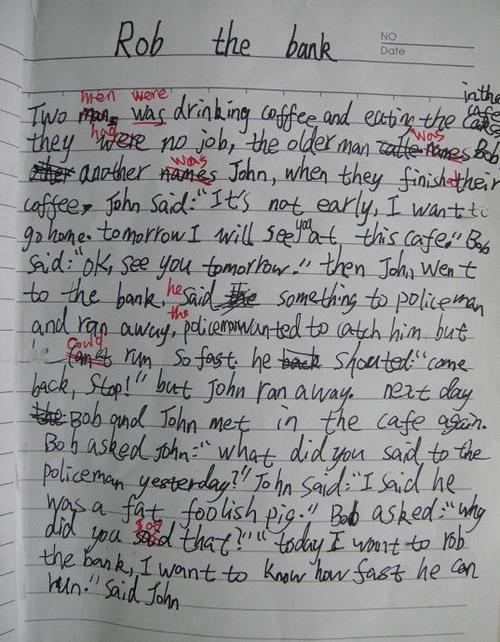 Rob the bank
NO
Date
in the
men were cafe
Two man was drinking coffee and eatin the cafe
had was
they were no job, the older man names Bob
was
another names John, when they finished their
coffee, John said:"It's not early, I want to
you
go home. tomorrow I will see at this cafe." Bob
said:"ok, see you tomorrow." then John went
he
to the bank, said the something to policeman
the
and ran away, policeman wanted to catch him but
could
run so fast. he back shouted:"come
back, stop!" but John ran away. next day
the Bob and John met in the cafe again.
Bob asked John:"what did you said to the
policeman yesterday?" John said:"I said he
was a fat foolish pig." Bob asked:"why
say
did you said that?" "today I want to rob
the bank, I want to know how fast he can
run." said John